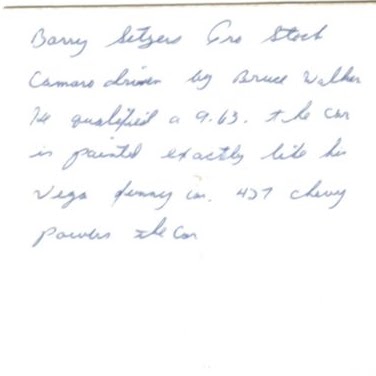 Barry Setzers Pro Stock
Camaro driven by Bruce Walker
He qualified a 9.63. the car
is painted exactly like his
Vega funny car. 427 chevy
powers the car